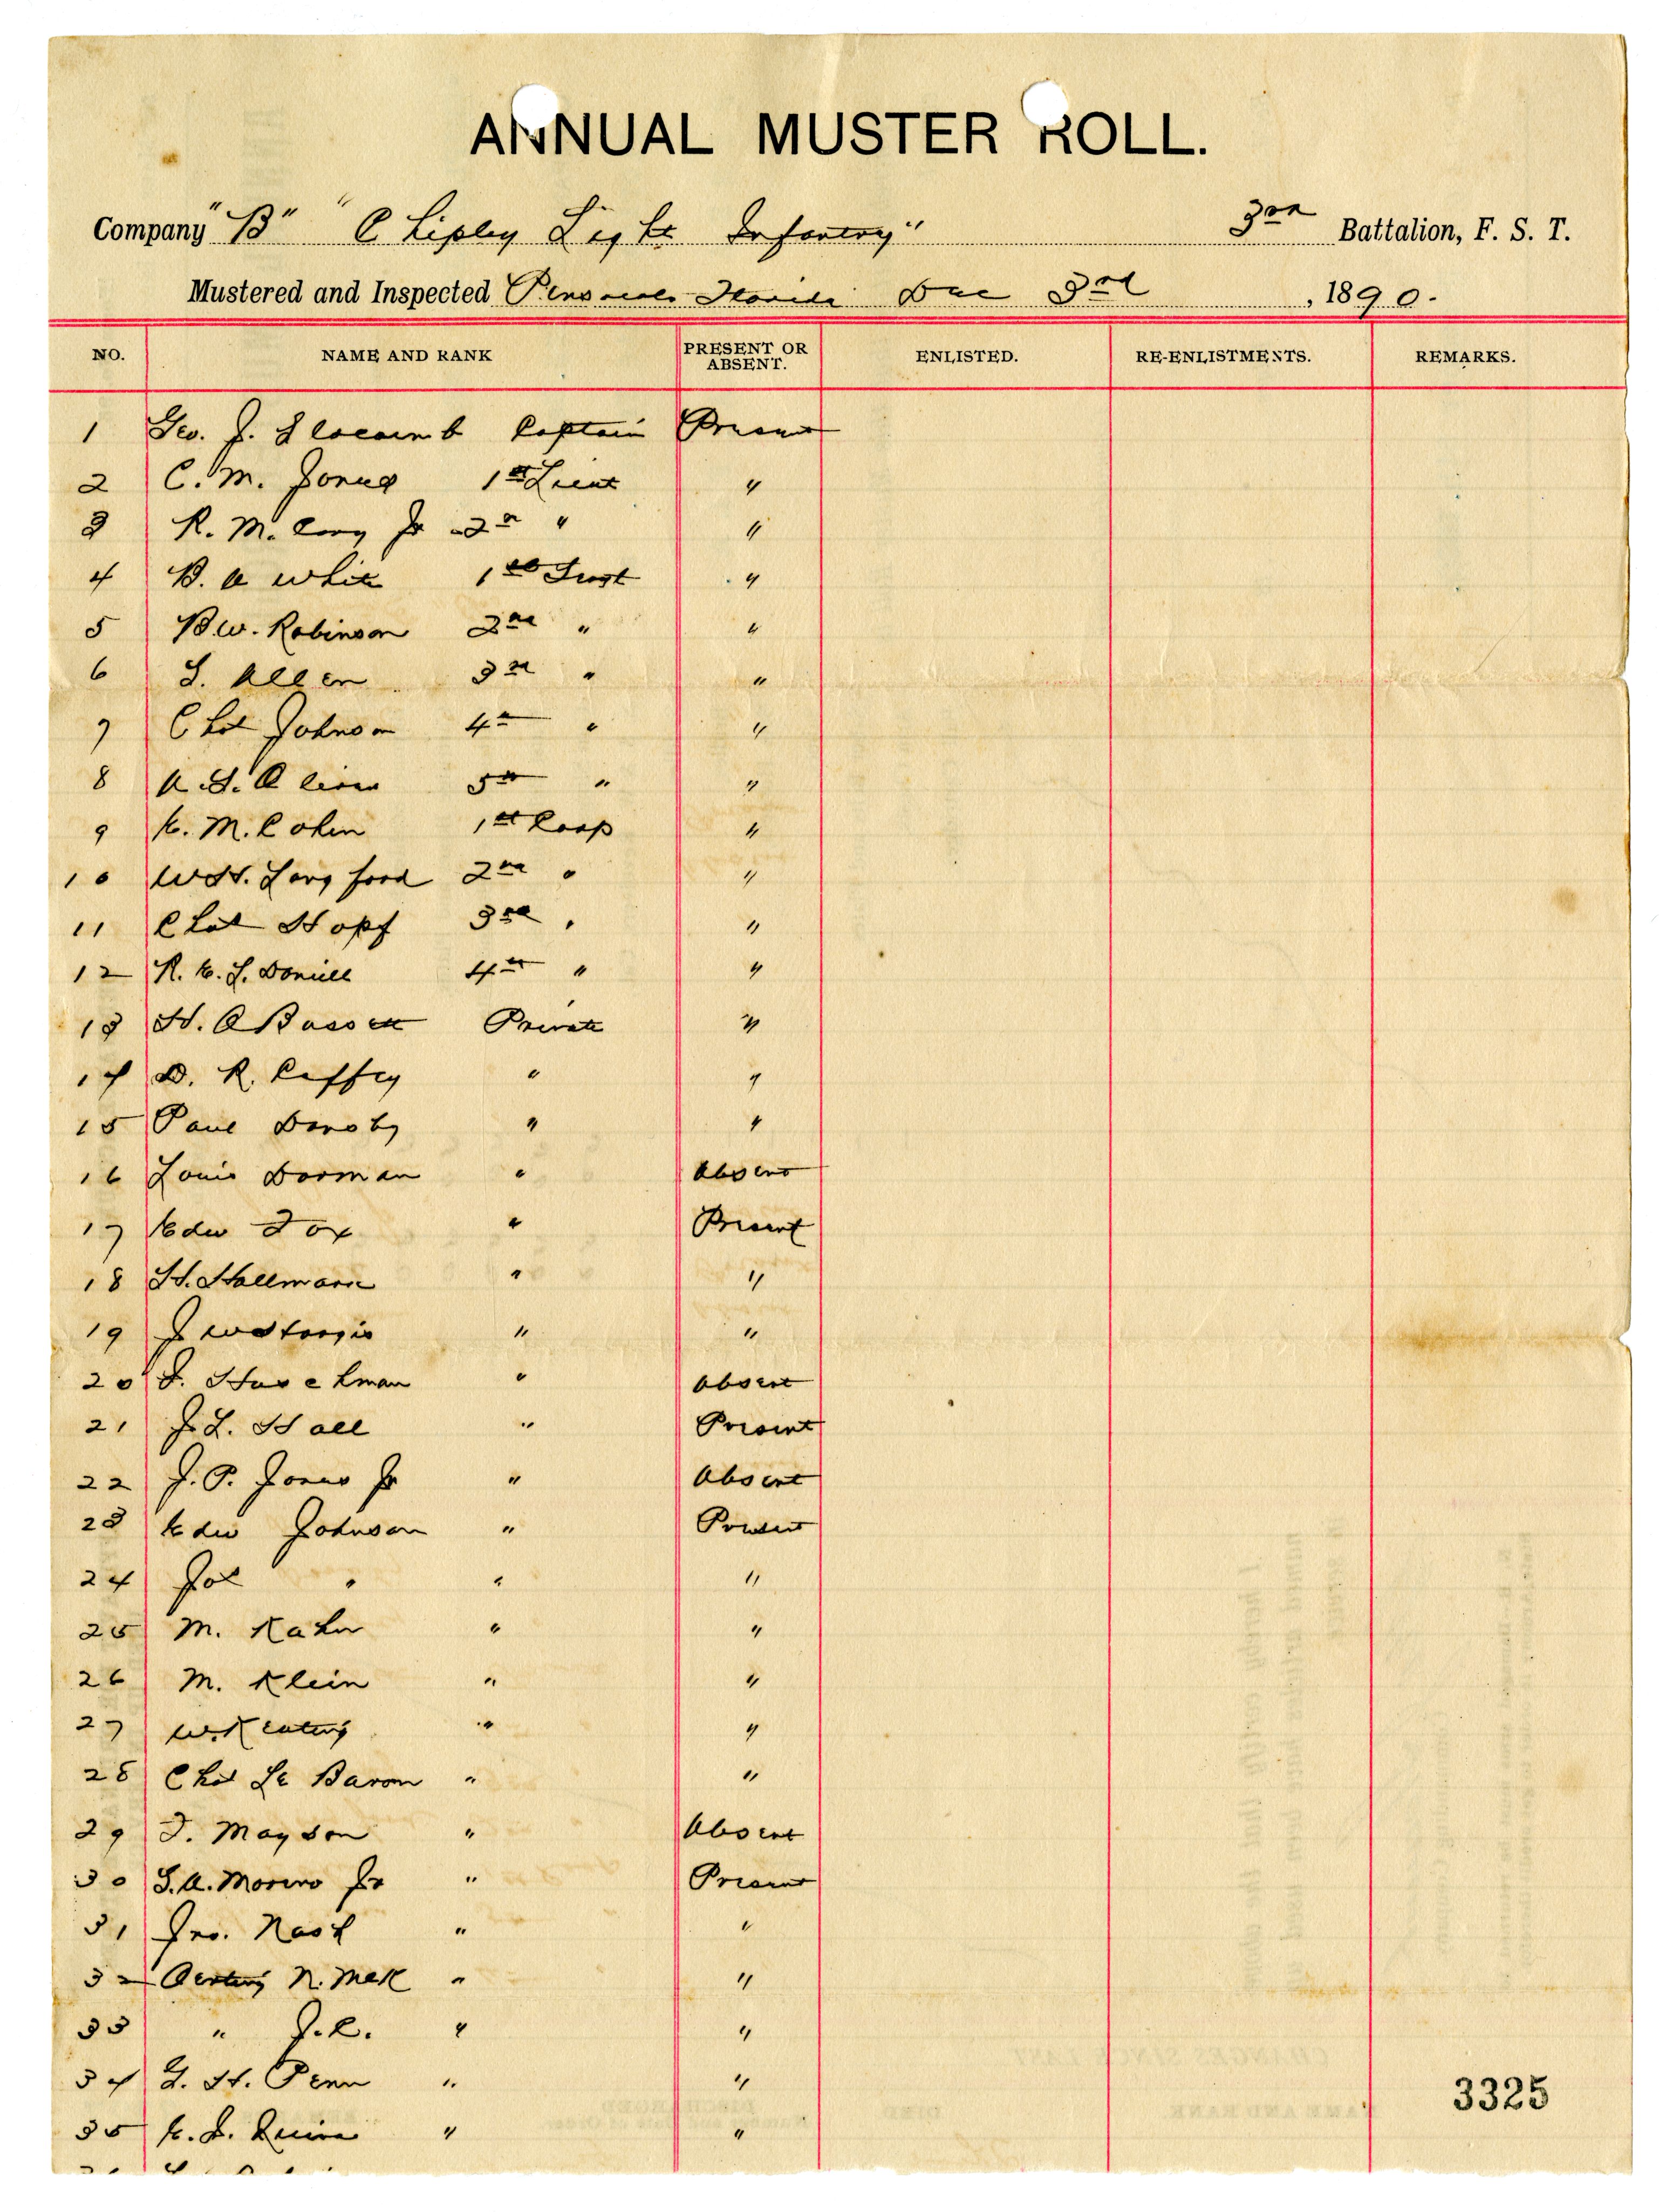 ANNUAL MUSTER ROLL.
Company "B" "Chipley Light Infantry" 3rd Battalion, F. S. T.
Mustered and Inspected Pensacola Florida Dec 3rd, 1890.
NO. NAME AND RANK PRESENT OR ABSENT. ENLISTED. RE-ENLISTMENTS. REMARKS.
1 Geo. J. Slocomb Captain Present
2 C. M. Jones 1st Lieut "
3 R. M. Cary Jr 2n "
4 B. A White 1st Sergt "
5 B W. Robinson 2nd " "
6 S. Allen 3rd " "
7 Chas Johnson 4th " "
8 5th " "
9 E. M. Cohen 1st Corp "
10 W H. Langford 2nd " "
11 Chas Hopf 3rd " "
12 R. E. L. Daniell 4th " "
13 H. O Bassett Private "
14 D. R. Caffey " "
15 Paul " "
16 Louis Dorman " Absent
17 Edw Fox " Present
18 H. Hallmark " "
19 " "
20 " Absent
21 J. L. Hall " Present
22 J. P. Jones Jr " Absent
23 Edw Johnson " Present
24 Jos " " "
25 M. Kahn " "
26 M. Klein " "
27 W. Keating " "
28 Chas Le Baron " "
29 F. Mayson " Absent
30 S. A. Moreno Jr " Present
31 Jno. Nash " "
32 Oerting N. McK " "
33 " J. C. " "
34 G. H. Penn " "
35 E. J. Quina " "
3325